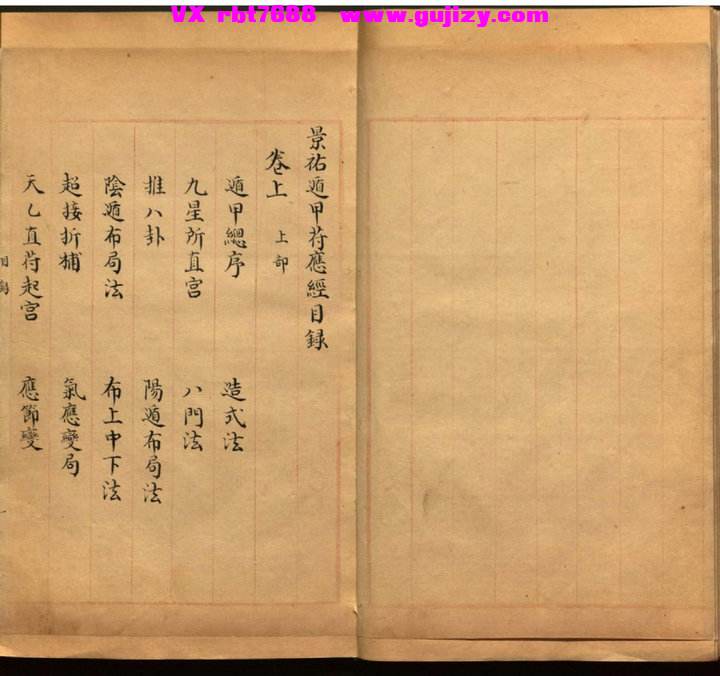 VX rbt7888 www.gujizy.com
景祐遁甲苻應經目録
卷上 上部
遁甲總序 造式法
九星所直宫 八門法
推八卦 陽遁布局法
陰遁布局法 布上中下法
超接折補 氣應變局
天乙直苻起宫 應節變